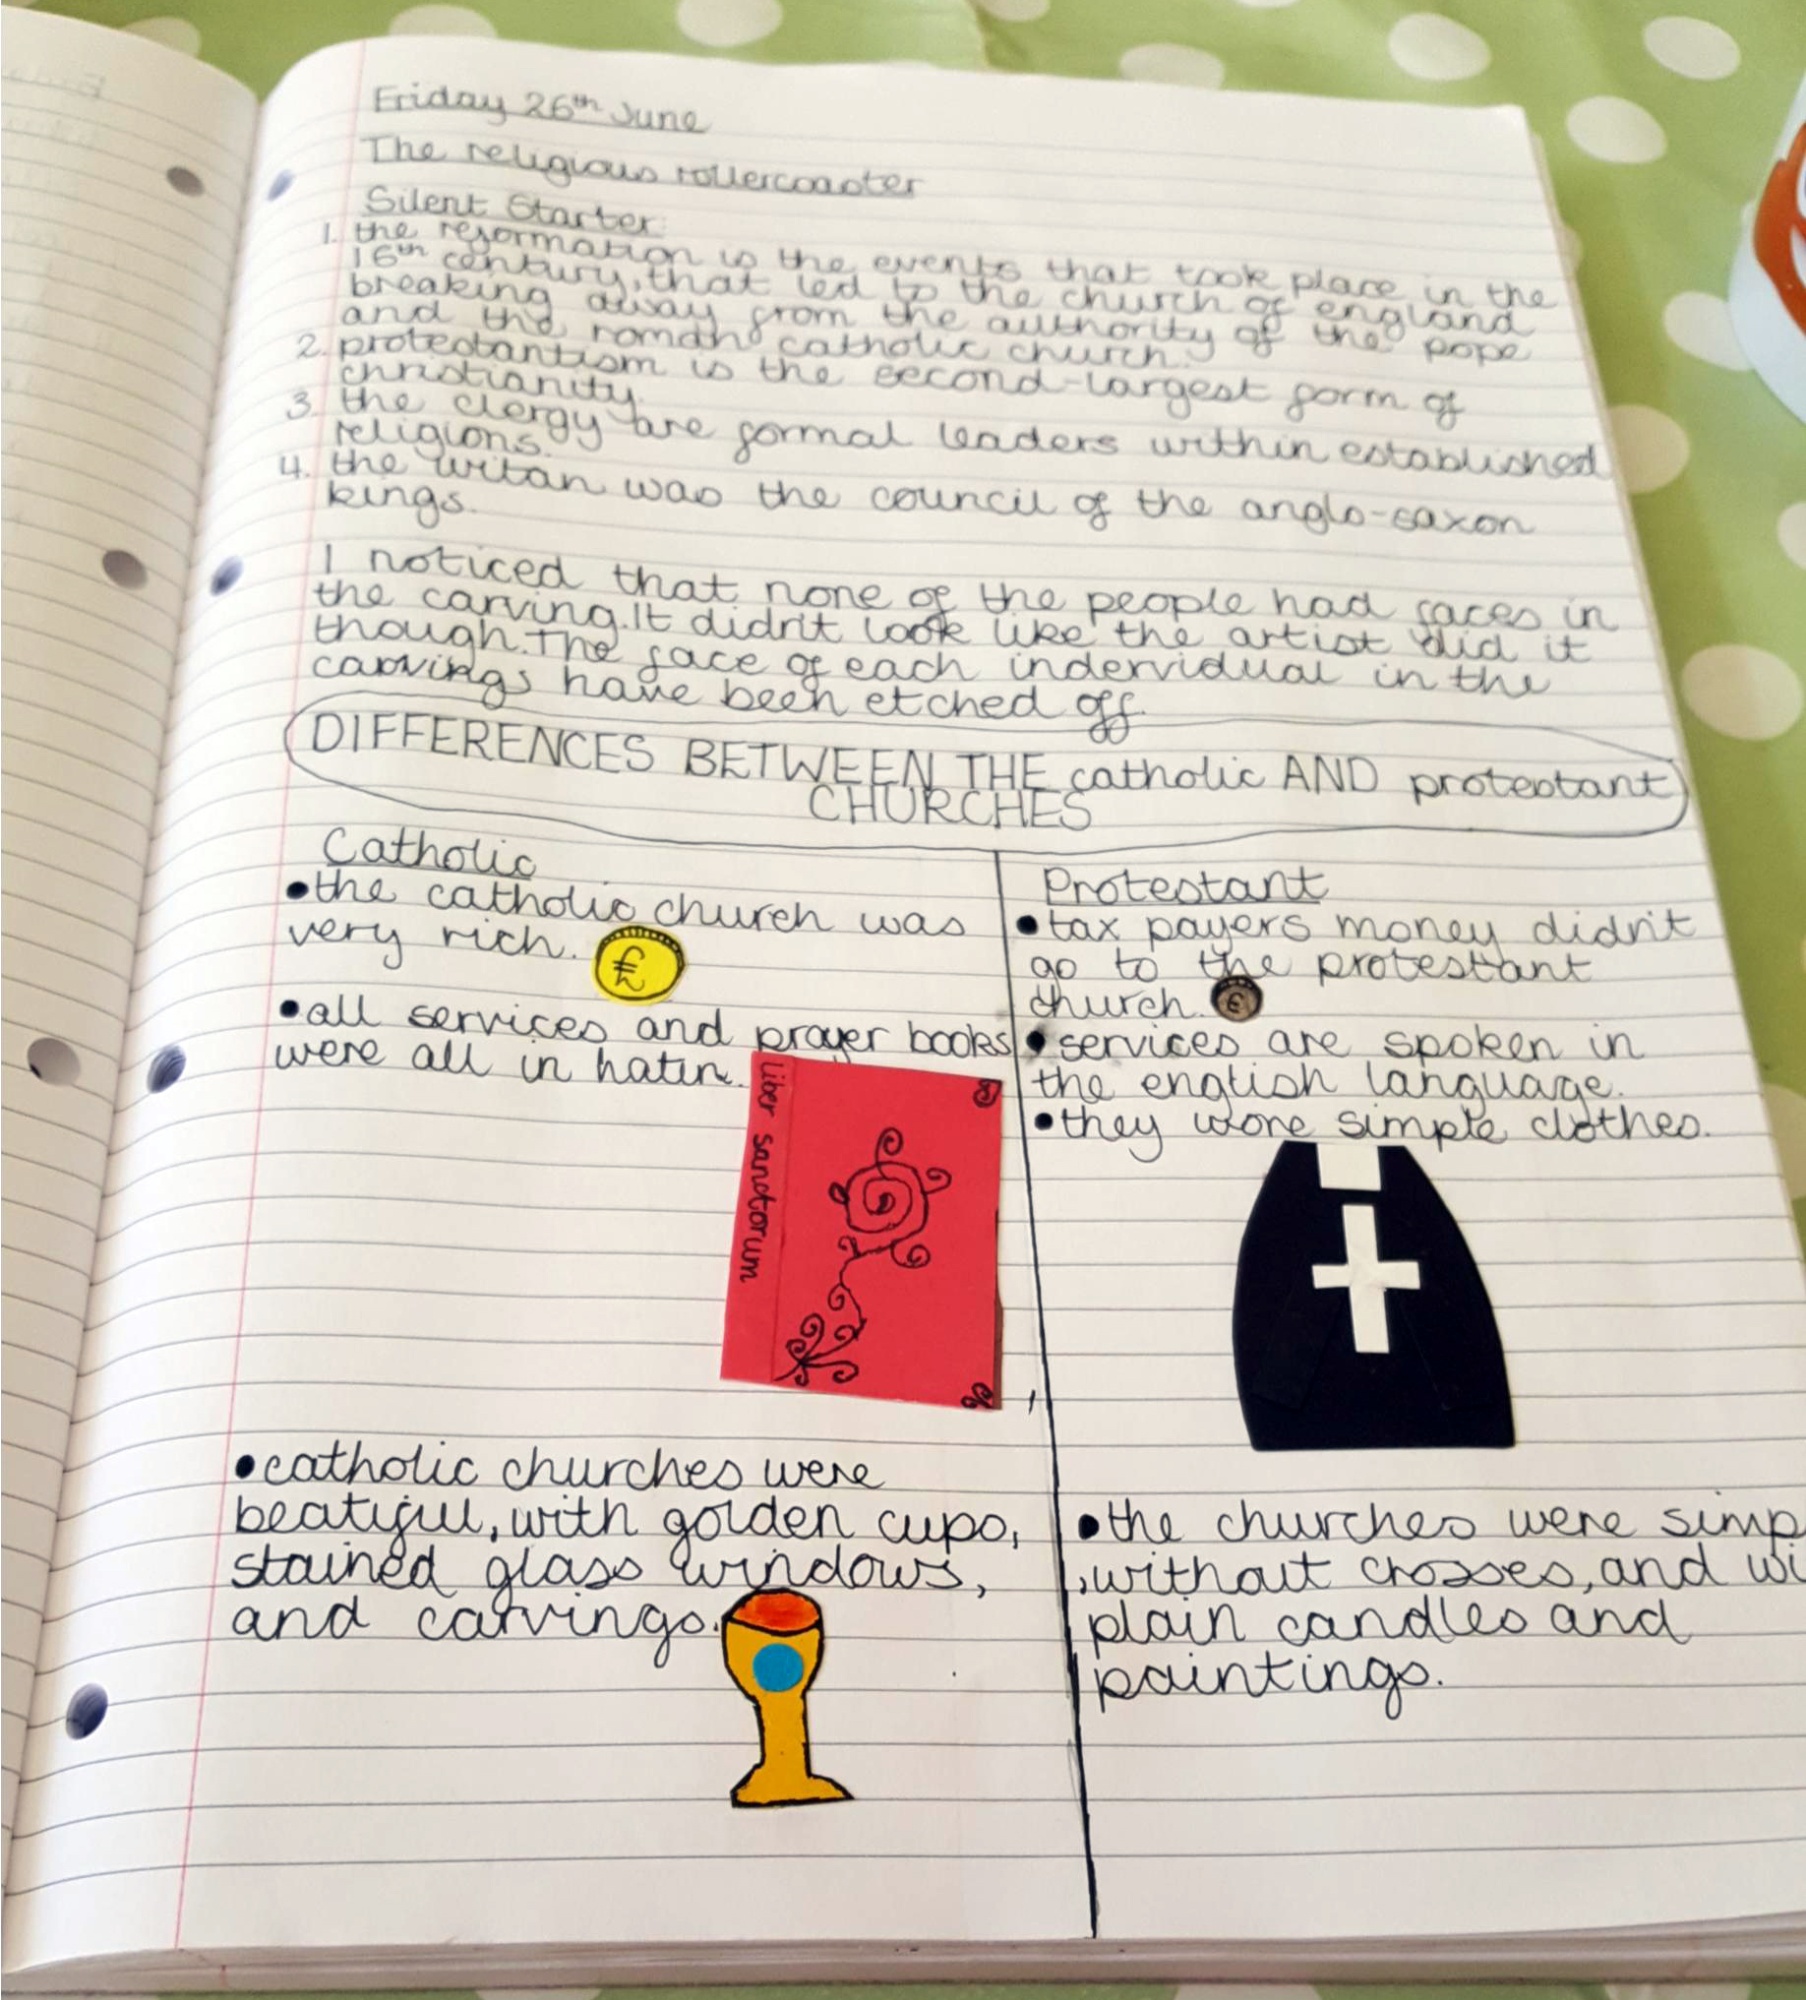 Friday 26th June
The religious rollercoaster
Silent Starter:
1. the reformation is the events that took place in the
16th century, that led to the church of england
breaking away from the authority of the pope
and the roman catholic church.
2. protestantism is the second-largest form of
christianity.
3. the clergy are formal leaders within established
religions.
4. the witan was the council of the anglo-saxon
kings.
I noticed that none of the people had faces in
the carving. It didn't look like the artist did it
though. The face of each indervidual in the
carvings have been etched off.
DIFFERENCES BETWEEN THE catholic AND protestant
CHURCHES
Catholic
•the catholic church was
very rich.
£
•all services and prayer books
were all in hatin.
liber sanctorum
•catholic churches were
beatiful, with golden cups,
stained glass windows,
and carvings.
Protestant
•tax payers money didn't
go to the protestant
church.
•services are spoken in
the english language.
•they wore simple clothes.
•the churches were simp
,without crosses, and wi
plain candles and
paintings.